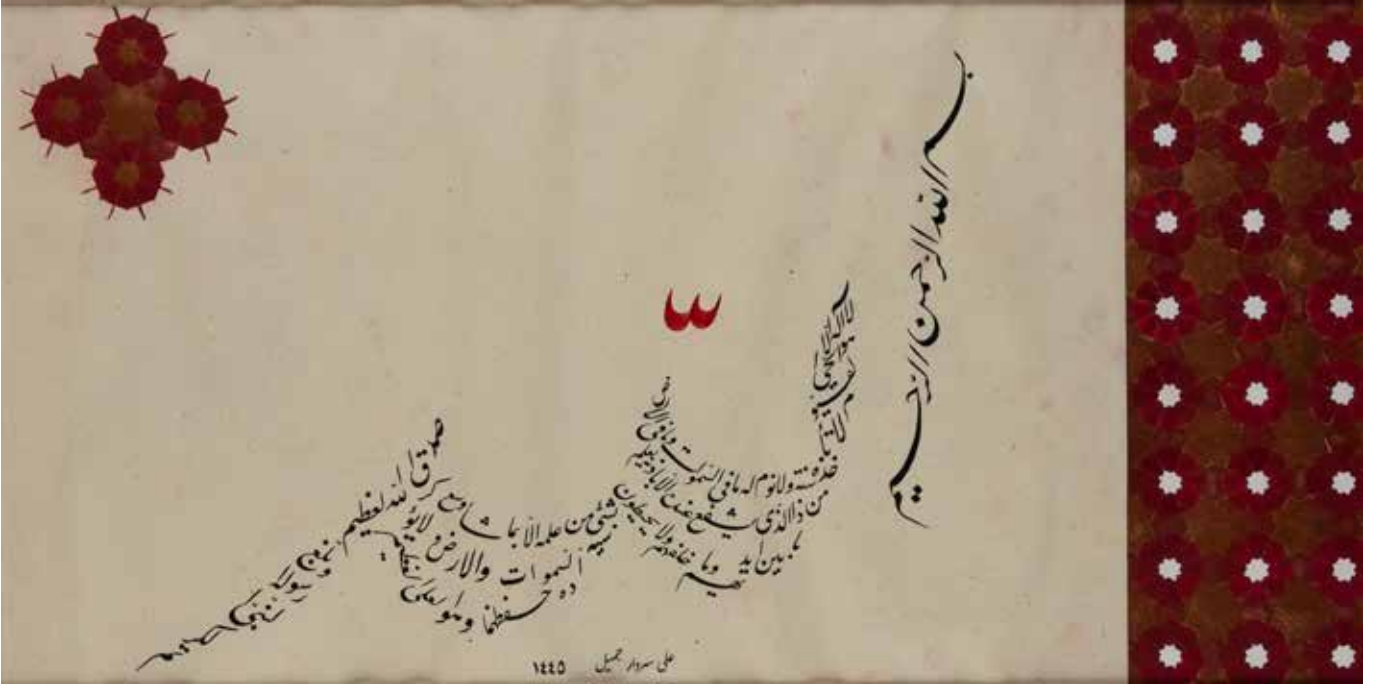 بسم الله الرحمن الرحيم
لا اله الا
هو الحي
القيوم
لا تأ
خذه سنة ولا نوم له ما في السموات وما في الارض
من ذا الذي يشفع عنده الا باذنه
ما بين ايديهم وما خلفهم ولا يحيطون
بشئ من علمه الا بما شاء وسع كر
سيه السموات والارض و لا يؤ
ده حفظهما وهو العلي العظيم
صدق الله العظيم
علی سردار جمیل ١٤٤٥